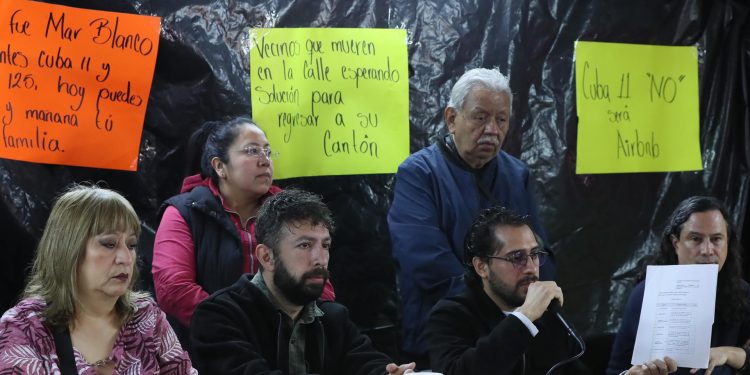 fue Mar Blanco
ntes Cuba 11 y
125, hoy puedes
y mañana tú
familia.
Vecinos que mueren
en la calle esperando
Solución para
regresar a su
Cantón
Cuba 11 "NO"
será
Airbnb